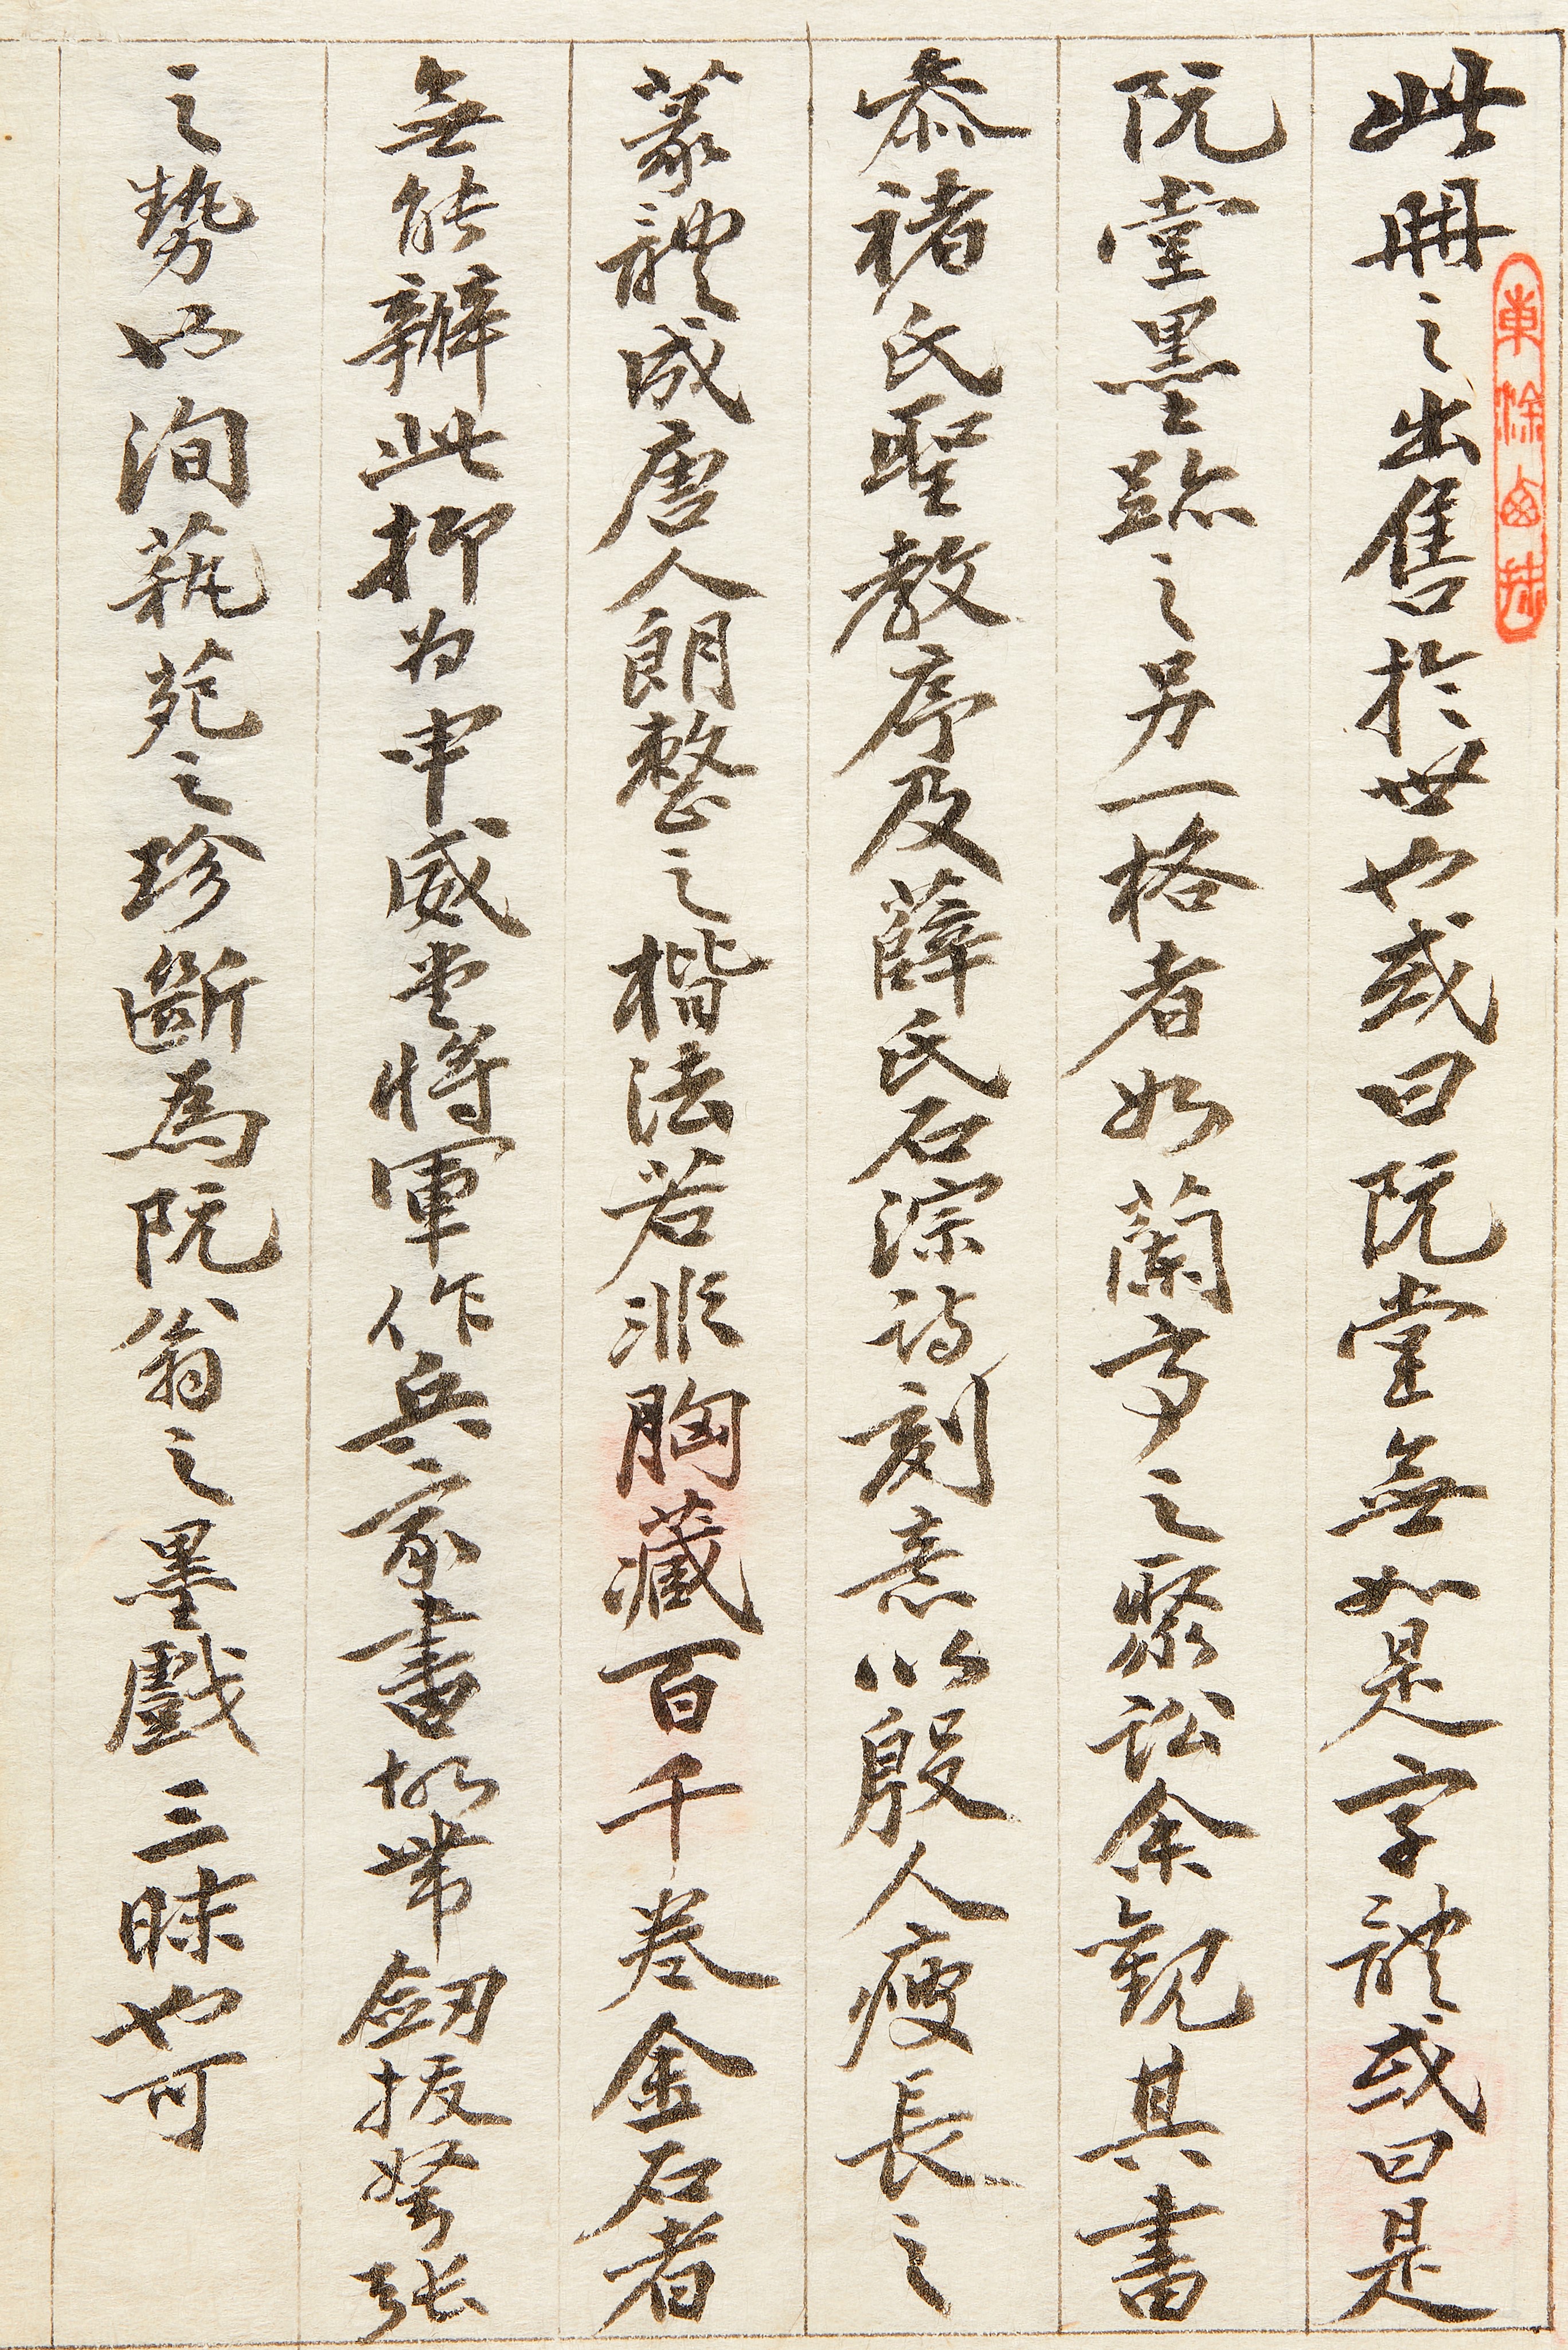 此冊之出售於世也或曰阮堂無如是字體或曰是
阮堂墨跡之另一格者如蘭亭之聚訟余觀其書
忝褚氏聖教序及薛氏石淙詩刻意以殷人瘦長之
篆體成唐人朗整之楷法若非胸藏百千卷金石者
無能辦此抑為申威堂將軍作兵家書故帶劒拔弩張
之勢以洵蓺苑之珍斷為阮翁之墨戲三昧也可